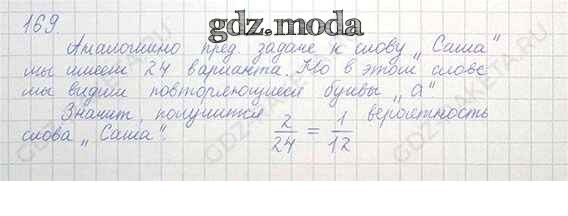 gdz.moda
169.
Аналогично пред. задаче к слову „Саша"
мы имеем 24 варианта. Но в этом слове
мы видим повторяющиеся буквы „а"
Значит, получится 2/24 = 1/12 вероятность
слова „Саша".